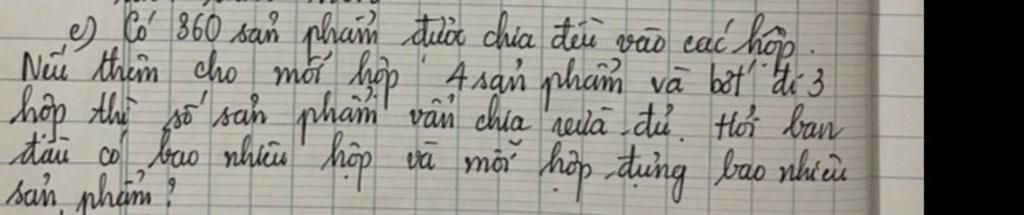 e) Có 360 sản phẩm được chia đều vào các hộp.
Nếu thêm cho mỗi hộp 4 sản phẩm và bớt đi 3
hộp thì số sản phẩm vẫn chia vừa đủ. Hỏi ban
đầu có bao nhiêu hộp và mỗi hộp đựng bao nhiêu
sản phẩm?